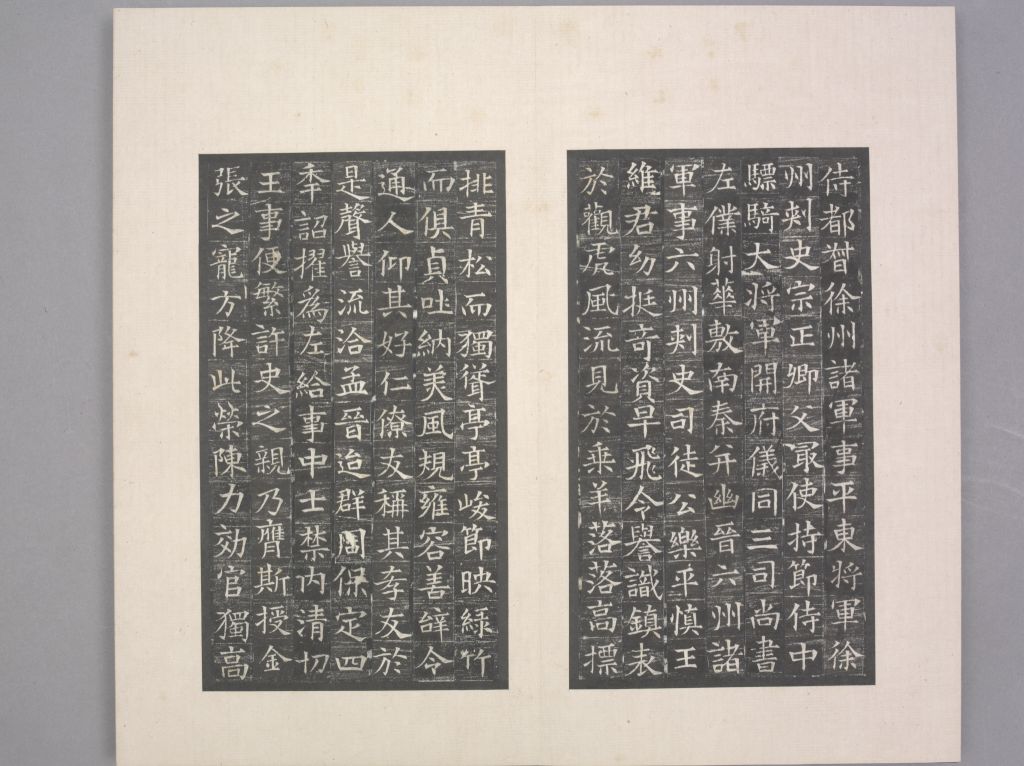 侍都督徐州諸軍事平東將軍徐
州刾史宗正卿父最使持節侍中
驃騎大將軍開府儀同三司尚書
左僕射華敷南秦并幽晉六州諸
軍事六州刾史司徒公樂平慎王
維君幼挺奇資早飛令譽識鎮表
於觀虎風流見於乘羊落落高標
排青松而獨聳亭亭峻節映緑竹
而俱貞吐納美風規雍容善辝令
通人仰其好仁僚友稱其孝友於
是聲譽流洽孟晉迨群周保定四
秊詔擢爲左給事中士禁内清切
王事便繁許史之親乃膺斯授金
張之寵方降此榮陳力効官獨高